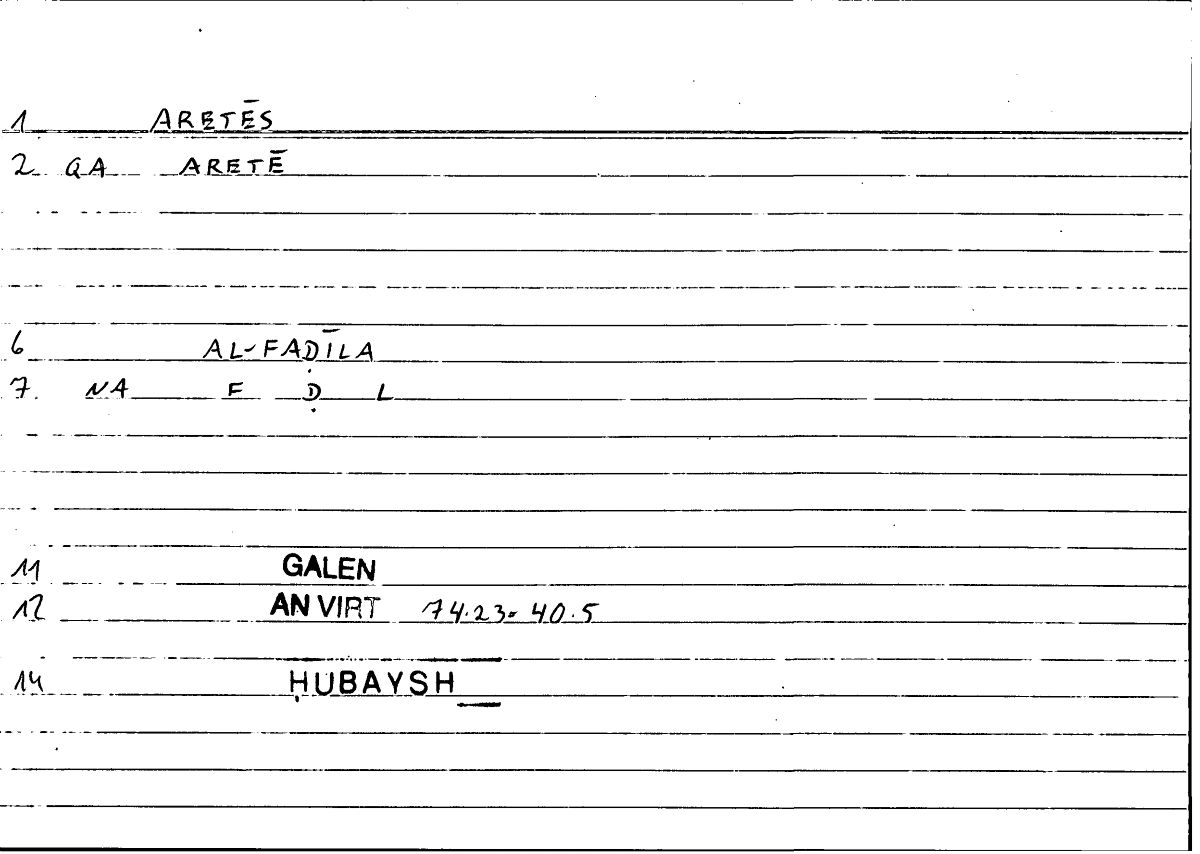 1 ARETĒS
2 QA ARETĒ
6 AL-FAḌĪLA
7. NA F Ḍ L
11 GALEN
12 AN VIRT 74.23= 40.5
14 ḤUBAYSH